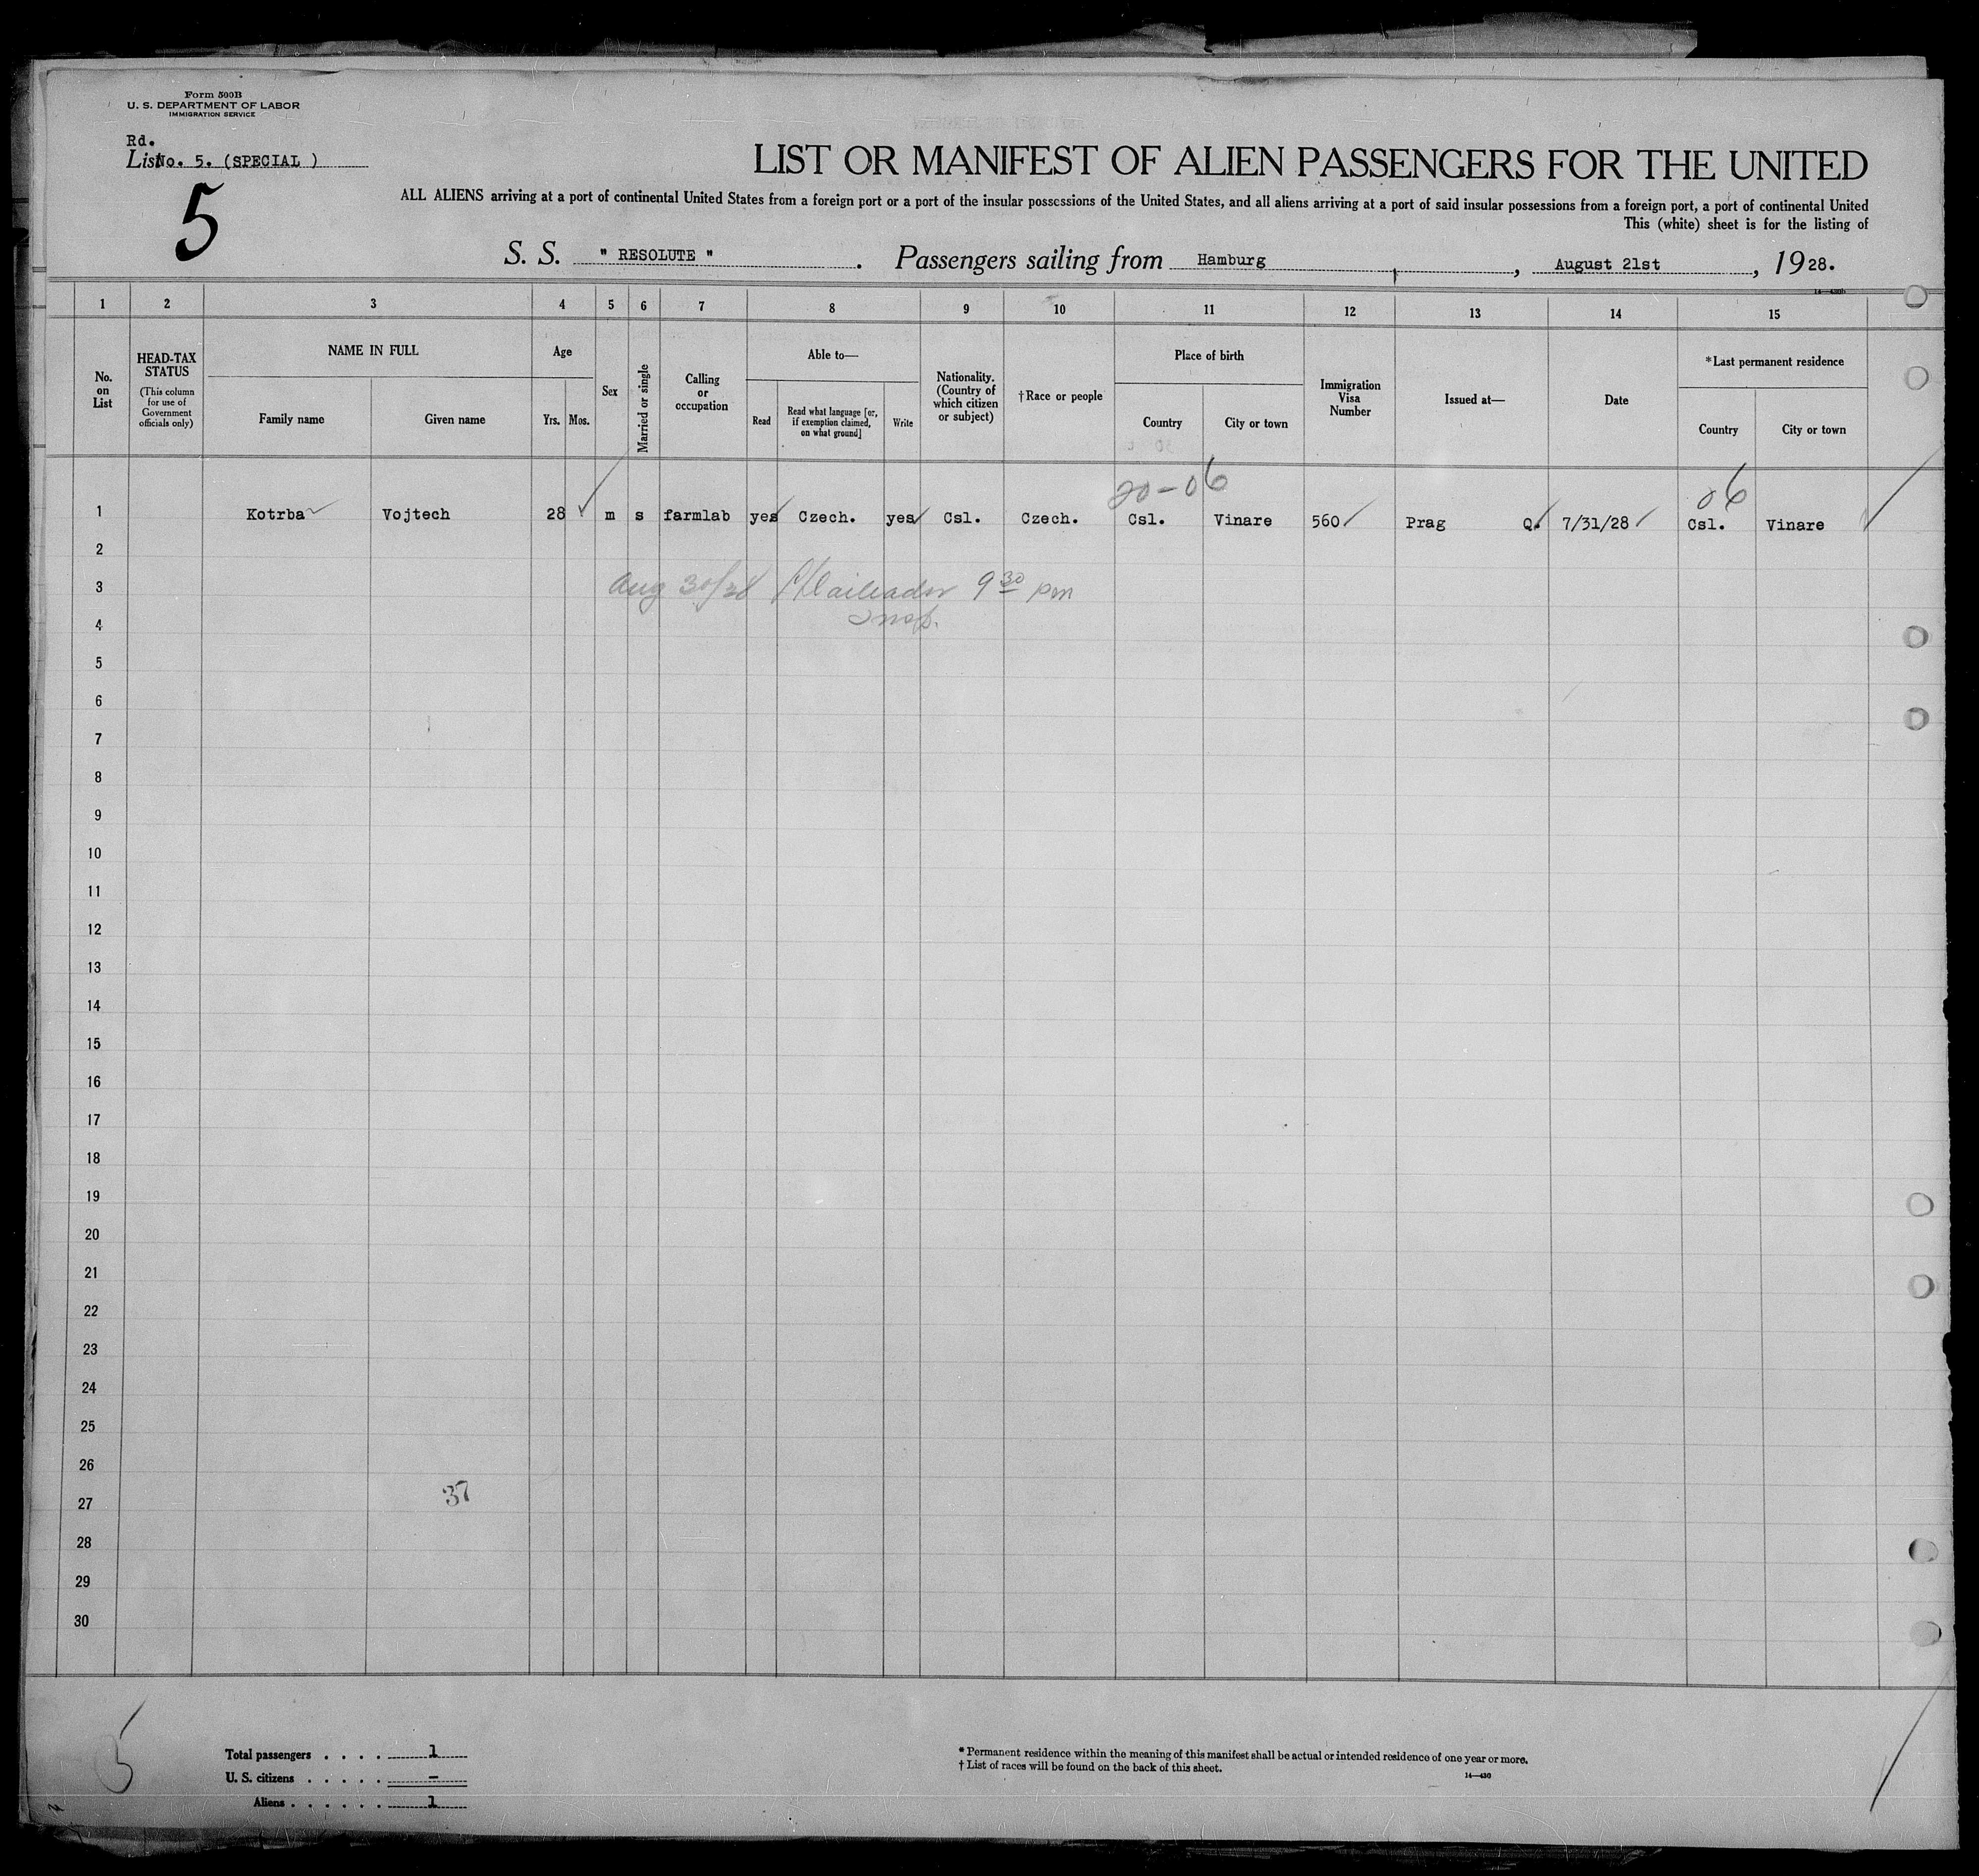 Form 500B
U. S. DEPARTMENT OF LABOR
IMMIGRATION SERVICE
Rd.
List No. 5. (SPECIAL )
5
LIST OR MANIFEST OF ALIEN PASSENGERS FOR THE UNITED
ALL ALIENS arriving at a port of continental United States from a foreign port or a port of the insular possessions of the United States, and all aliens arriving at a port of said insular possessions from a foreign port, a port of continental United
This (white) sheet is for the listing of
S. S. " RESOLUTE " . Passengers sailing from Hamburg , August 21st , 1928.
14—430b
1 2 3 4 5 6 7 8 9 10 11 12 13 14 15
No. on List
HEAD-TAX STATUS
(This column for use of Government officials only)
NAME IN FULL
Family name Given name
Age
Yrs. Mos.
Sex
Married or single
Calling or occupation
Able to—
Read
Read what language [or, if exemption claimed, on what ground]
Write
Nationality. (Country of which citizen or subject)
†Race or people
Place of birth
Country City or town
Immigration Visa Number
Issued at—
Date
*Last permanent residence
Country City or town
20-06 06
1 Kotrba Vojtech 28 m s farmlab yes Czech. yes Csl. Czech. Csl. Vinare 560 Prag Q. 7/31/28 Csl. Vinare
2
3 Aug 30/28 9 30 pm
4 Insp.
5
6
7
8
9
10
11
12
13
14
15
16
17
18
19
20
21
22
23
24
25
26
37
27
28
29
30
5
Total passengers . . . . 1
U. S. citizens . . . . . –
Aliens . . . . . . 1
* Permanent residence within the meaning of this manifest shall be actual or intended residence of one year or more.
† List of races will be found on the back of this sheet.
14—430